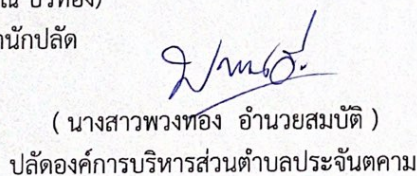 ณ บัวทอง)
านักปลัด
( นางสาวพวงทอง อำนวยสมบัติ )
ปลัดองค์การบริหารส่วนตำบลประจันตคาม